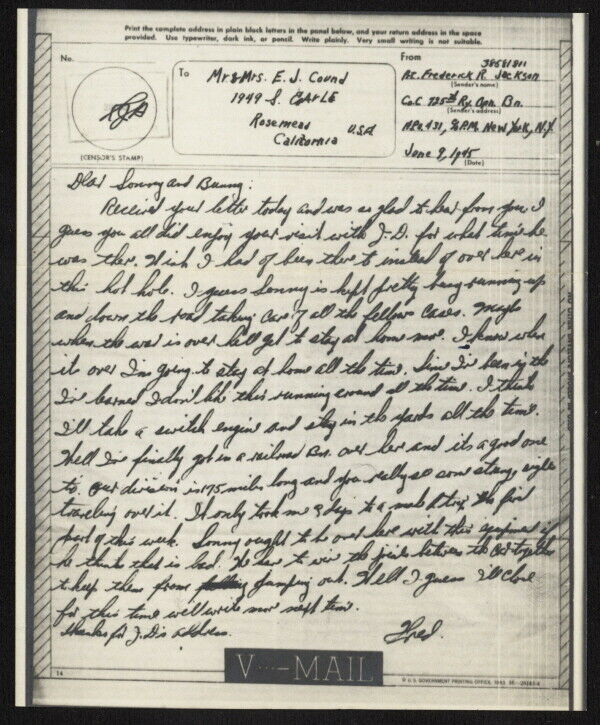 Print the complete address in plain block letters in the panel below, and your return address in the space
provided. Use typewriter, dark ink, or pencil. Write plainly. Very small writing is not suitable.
No.
(CENSOR'S STAMP)
To
Mr & Mrs. E. J. Cound
1949 S.
Rosemead
California U.S.A
From
38581811
Frederick R. Jackson
(Sender's name)
Co C 725th Ry. Opn. Bn.
(Sender's address)
APO 431, % P.M. New York, N.Y.
June 9, 1945
(Date)
Dear Sonny and Bunny:
Received your letter today and was so glad to hear from you. I
guess you all did enjoy your visit with J.D. for what time he
was there. Wish I had of been there to instead of over here in
this hot hole. I guess Sonny is kept pretty busy running up
and down the road taking care of all the fellows cases. Maybe
when the war is over he'll get to stay at home more. I know when
its over I'm going to stay at home all the time. Since I've been in the
I've learned I don't like this running around all the time. I think
I'll take a switch engine and stay in the yards all the time.
Well I've finally got in a railroad Bn. over here and its a good one
to. Our division is 175 miles long and you really see some strange sights
traveling over it. It only took me 3 days to make a trip the first
part of this week. Sonny ought to be over here with this equipment if
he thinks that is bad. We have to wire the together
to keep them from jumping out. Well I guess I'll close
for this time will write more next time.
thanks for J.D.'s address.
Fred.
V···—MAIL
14
U.S. GOVERNMENT PRINTING OFFICE